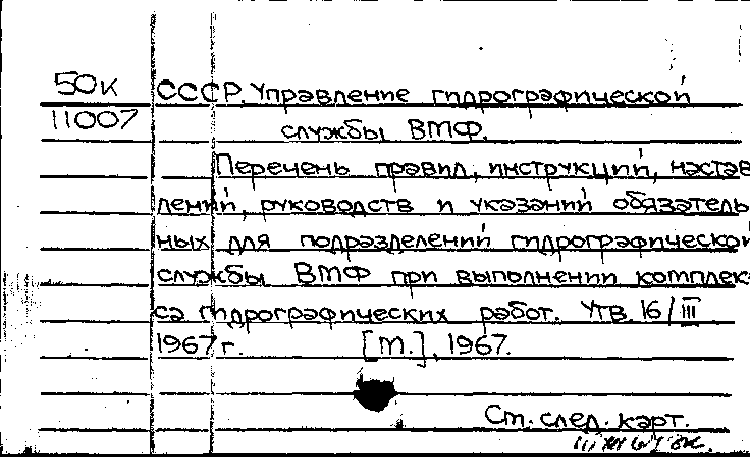 50к СССР. Управление гидрографической
11007 службы ВМФ.
Перечень правил, инструкций, настав
лений, руководств и указаний обязатель
ных для подразделений гидрографической
службы ВМФ при выполнении комплек
са гидрографических работ. Утв. 16/III
1967 г. [М.], 1967.
См. след. карт.